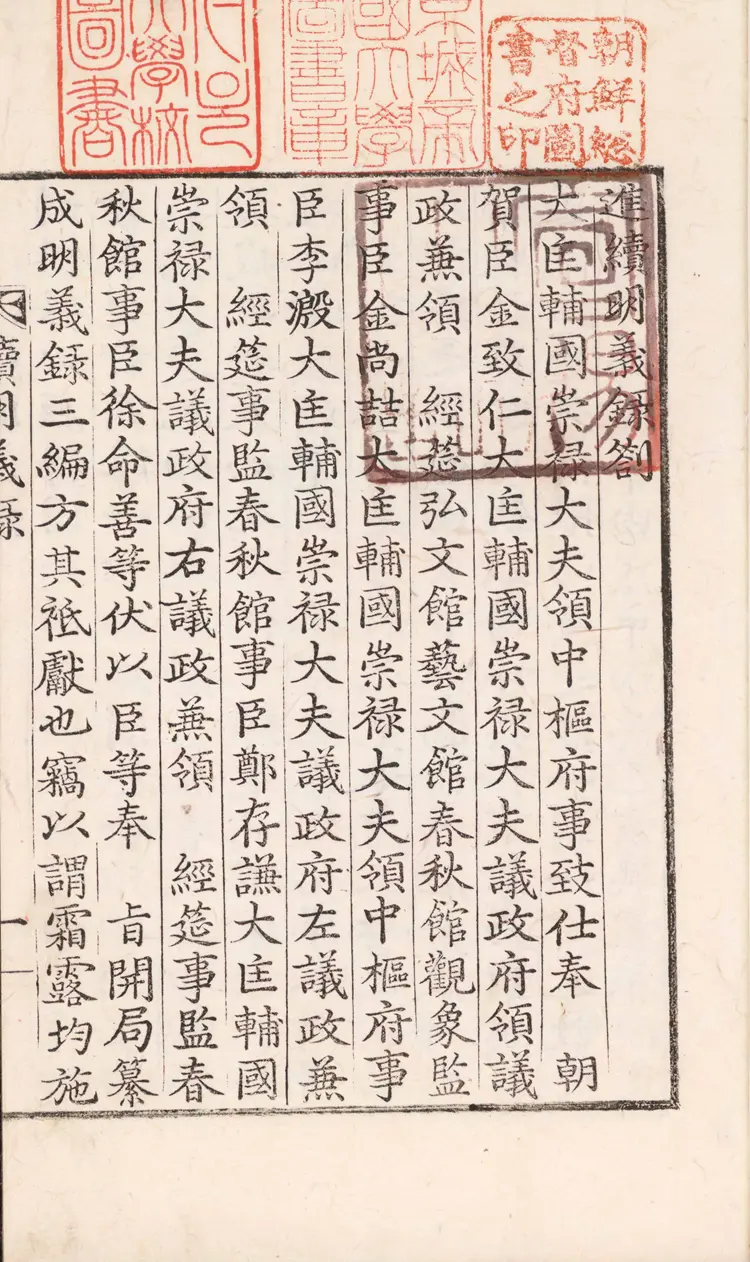 朝鮮総
督府圖
書之印
京城帝
國大學
圖書章
大學校
圖書
進續明義錄劄
大匡輔國崇禄大夫領中樞府事致仕奉　朝
賀臣金致仁大匡輔國崇禄大夫議政府領議
政兼領　經筵弘文館藝文館春秋館觀象監
事臣金尚喆大匡輔國崇禄大夫領中樞府事
臣李溵大匡輔國崇禄大夫議政府左議政兼
領　經筵事監春秋館事臣鄭存謙大匡輔國
崇禄大夫議政府右議政兼領　經筵事監春
秋館事臣徐命善等伏以臣等奉　旨開局纂
成明義錄三編方其祗獻也竊以謂霜露均施
續明義錄　一